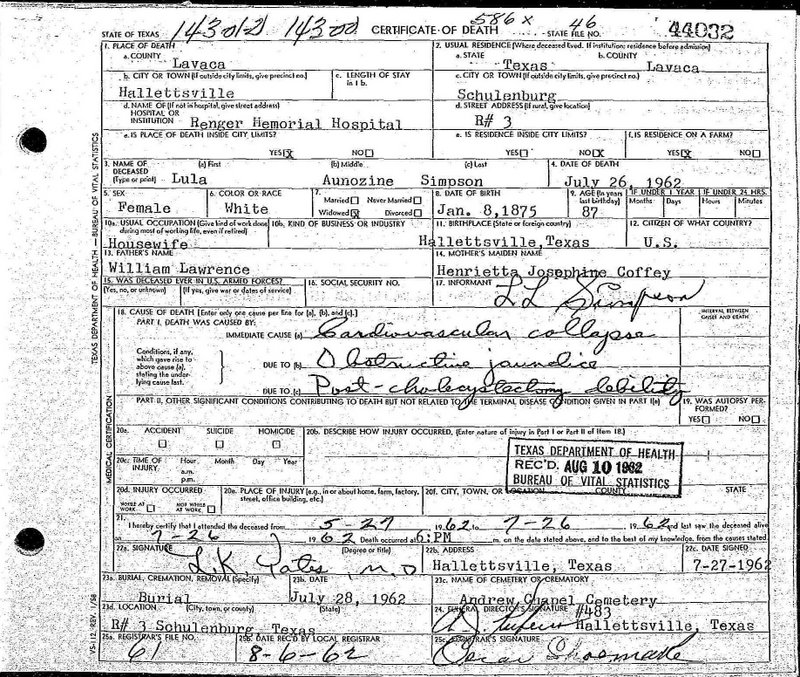 586 x
STATE OF TEXAS 14301-2 14300 CERTIFICATE OF DEATH STATE FILE NO. 46 44032
1. PLACE OF DEATH 2. USUAL RESIDENCE (Where deceased lived. If institution: residence before admission)
a. COUNTY a. STATE b. COUNTY
Lavaca Texas Lavaca
b. CITY OR TOWN (If outside city limits, give precinct no.) c. LENGTH OF STAY in 1 b. c. CITY OR TOWN (If outside city limits, give precinct no.)
Hallettsville Schulenburg
d. NAME OF (If not in hospital, give street address) HOSPITAL OR INSTITUTION d. STREET ADDRESS (If rural, give location)
Renger Memorial Hospital R# 3
e. IS PLACE OF DEATH INSIDE CITY LIMITS? e. IS RESIDENCE INSIDE CITY LIMITS? f. IS RESIDENCE ON A FARM?
YES X NO YES NO X YES X NO
3. NAME OF DECEASED (Type or print) (a) First (b) Middle (c) Last 4. DATE OF DEATH
Lula Aunozine Simpson July 26, 1962
5. SEX 6. COLOR OR RACE 7. Married Never Married 8. DATE OF BIRTH 9. AGE (In years last birthday) IF UNDER 1 YEAR IF UNDER 24 HRS.
Months Days Hours Minutes
Female White Widowed X Divorced Jan. 8,1875 87
10a. USUAL OCCUPATION (Give kind of work done during most of working life, even if retired) 10b. KIND OF BUSINESS OR INDUSTRY 11. BIRTHPLACE (State or foreign country) 12. CITIZEN OF WHAT COUNTRY?
Housewife Hallettsville,Texas U.S.
13. FATHER'S NAME 14. MOTHER'S MAIDEN NAME
William Lawrence Henrietta Josephine Coffey
15. WAS DECEASED EVER IN U.S. ARMED FORCES? 16. SOCIAL SECURITY NO. 17. INFORMANT
(Yes, no, or unknown) (If yes, give war or dates of service) L L Simpson
18. CAUSE OF DEATH [Enter only one cause per line for (a), (b), and (c).] INTERVAL BETWEEN ONSET AND DEATH
PART I. DEATH WAS CAUSED BY:
IMMEDIATE CAUSE (a) Cardiovascular collapse
Conditions, if any, which gave rise to above cause (a), stating the underlying cause last.
DUE TO (b) Obstructive jaundice
DUE TO (c) Post-cholecystectomy debility
PART II. OTHER SIGNIFICANT CONDITIONS CONTRIBUTING TO DEATH BUT NOT RELATED TO THE TERMINAL DISEASE CONDITION GIVEN IN PART I(a) 19. WAS AUTOPSY PERFORMED?
YES NO
20a. ACCIDENT SUICIDE HOMICIDE 20b. DESCRIBE HOW INJURY OCCURRED. (Enter nature of injury in Part I or Part II of Item 18.)
20c. TIME OF INJURY Hour Month Day Year
a.m.
p.m.
TEXAS DEPARTMENT OF HEALTH
REC'D. AUG 10 1962
BUREAU OF VITAL STATISTICS
20d. INJURY OCCURRED 20e. PLACE OF INJURY (e.g., in or about home, farm, factory, street, office building, etc.) 20f. CITY, TOWN, OR LOCATION COUNTY STATE
WHILE AT WORK NOT WHILE AT WORK
21. I hereby certify that I attended the deceased from 5-27 1962 to 7-26 1962 and last saw the deceased alive
on 7-26 1962 Death occurred at 6:PM m. on the date stated above, and to the best of my knowledge, from the causes stated.
22a. SIGNATURE (Degree or title) 22b. ADDRESS 22c. DATE SIGNED
L.K. Yates, M.D Hallettsville, Texas 7-27-1962
23a. BURIAL, CREMATION, REMOVAL (Specify) 23b. DATE 23c. NAME OF CEMETERY OR CREMATORY
Burial July 28, 1962 Andrew Chapel Cemetery
23d. LOCATION (City, town, or county) (State) 24. FUNERAL DIRECTOR'S SIGNATURE #483
R# 3 Schulenburg, Texas Hallettsville, Texas
25a. REGISTRAR'S FILE NO. 25b. DATE REC'D BY LOCAL REGISTRAR 25c. REGISTRAR'S SIGNATURE
61 8-6-62 Oscar Shoemake
TEXAS DEPARTMENT OF HEALTH — BUREAU OF VITAL STATISTICS
MEDICAL CERTIFICATION
VS-112, REV. 1/58